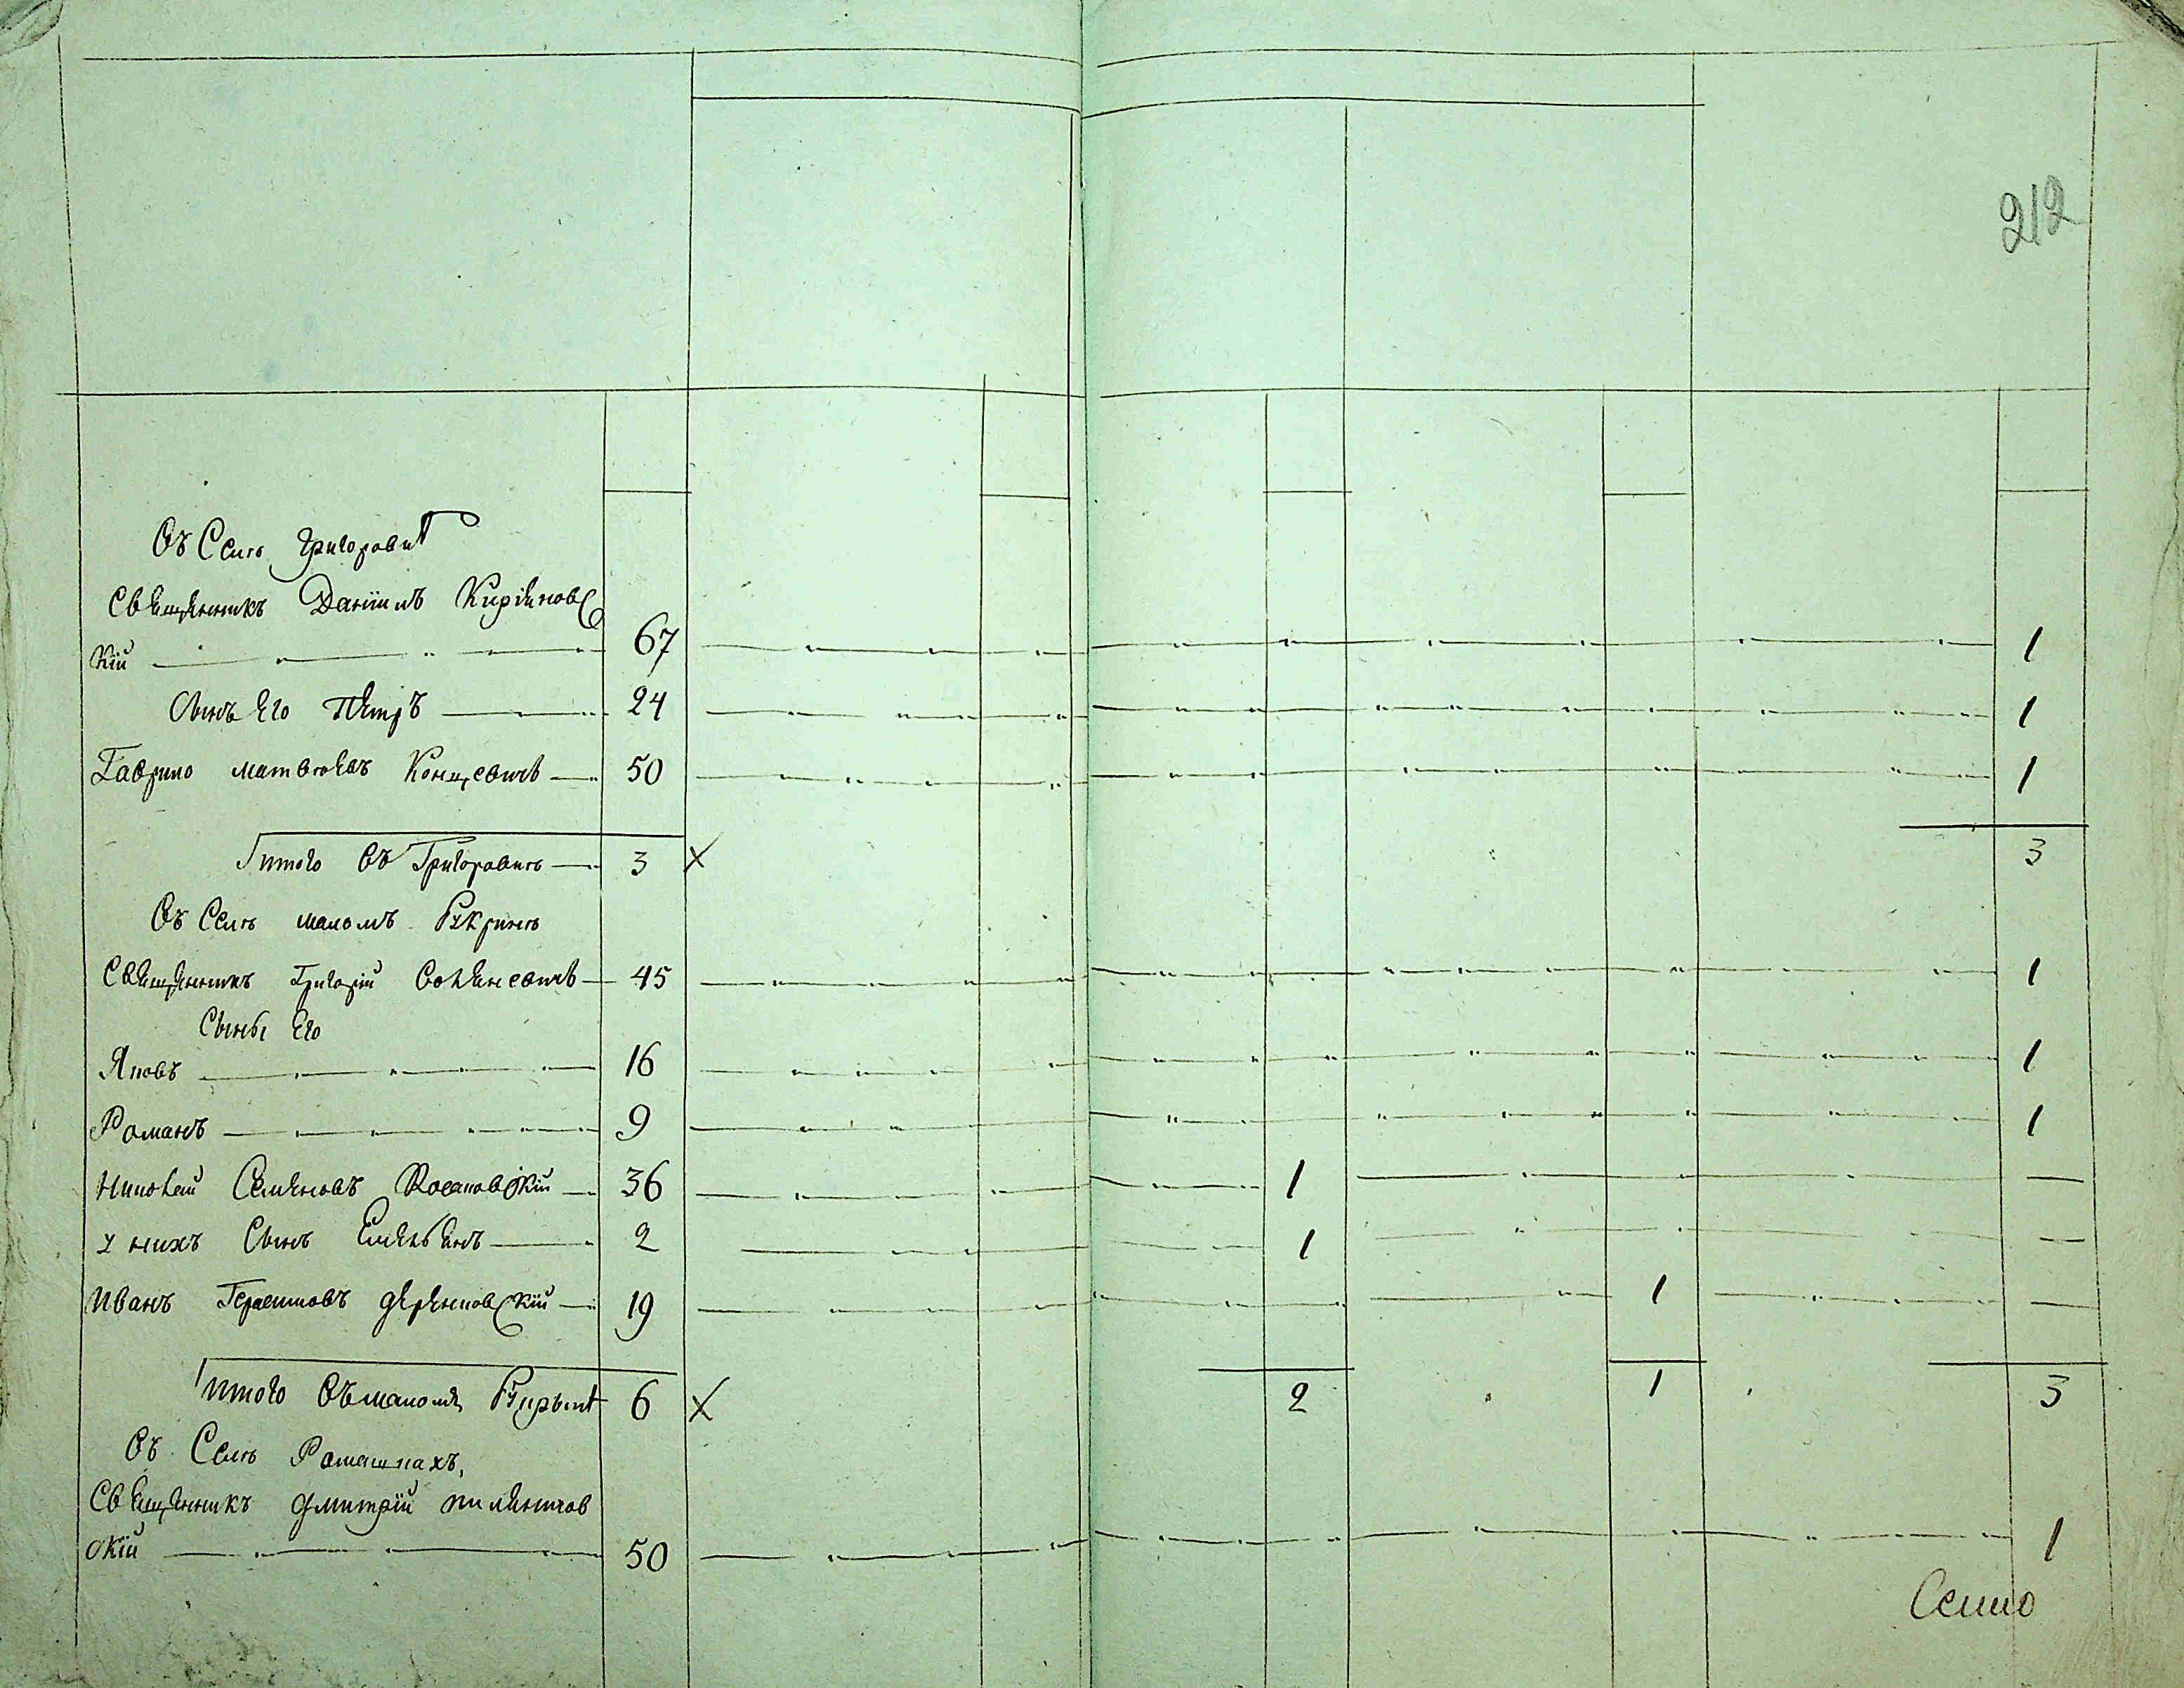 212
Въ Селѣ Григоровкѣ
Священникъ Даніилъ Киріяновс
кій 67 1
Сынъ Его Петръ 24 1
Гаврило Матвѣевъ Концевичъ 50 1
итого въ Григоровкѣ 3 × 3
Въ Селѣ маломъ Букринѣ
Священникъ Григорій 45 1
Сыны Его
Яковъ 16 1
Романъ 9 1
Николай Семеновъ 36 1
у нихъ Сынъ Емельянъ 2 1
Иванъ Герасимовъ 19 1
итого въ маломъ 6 × 2 1 3
Въ Селѣ Ромашкахъ,
Священникъ Дмитрій
скій 50 1